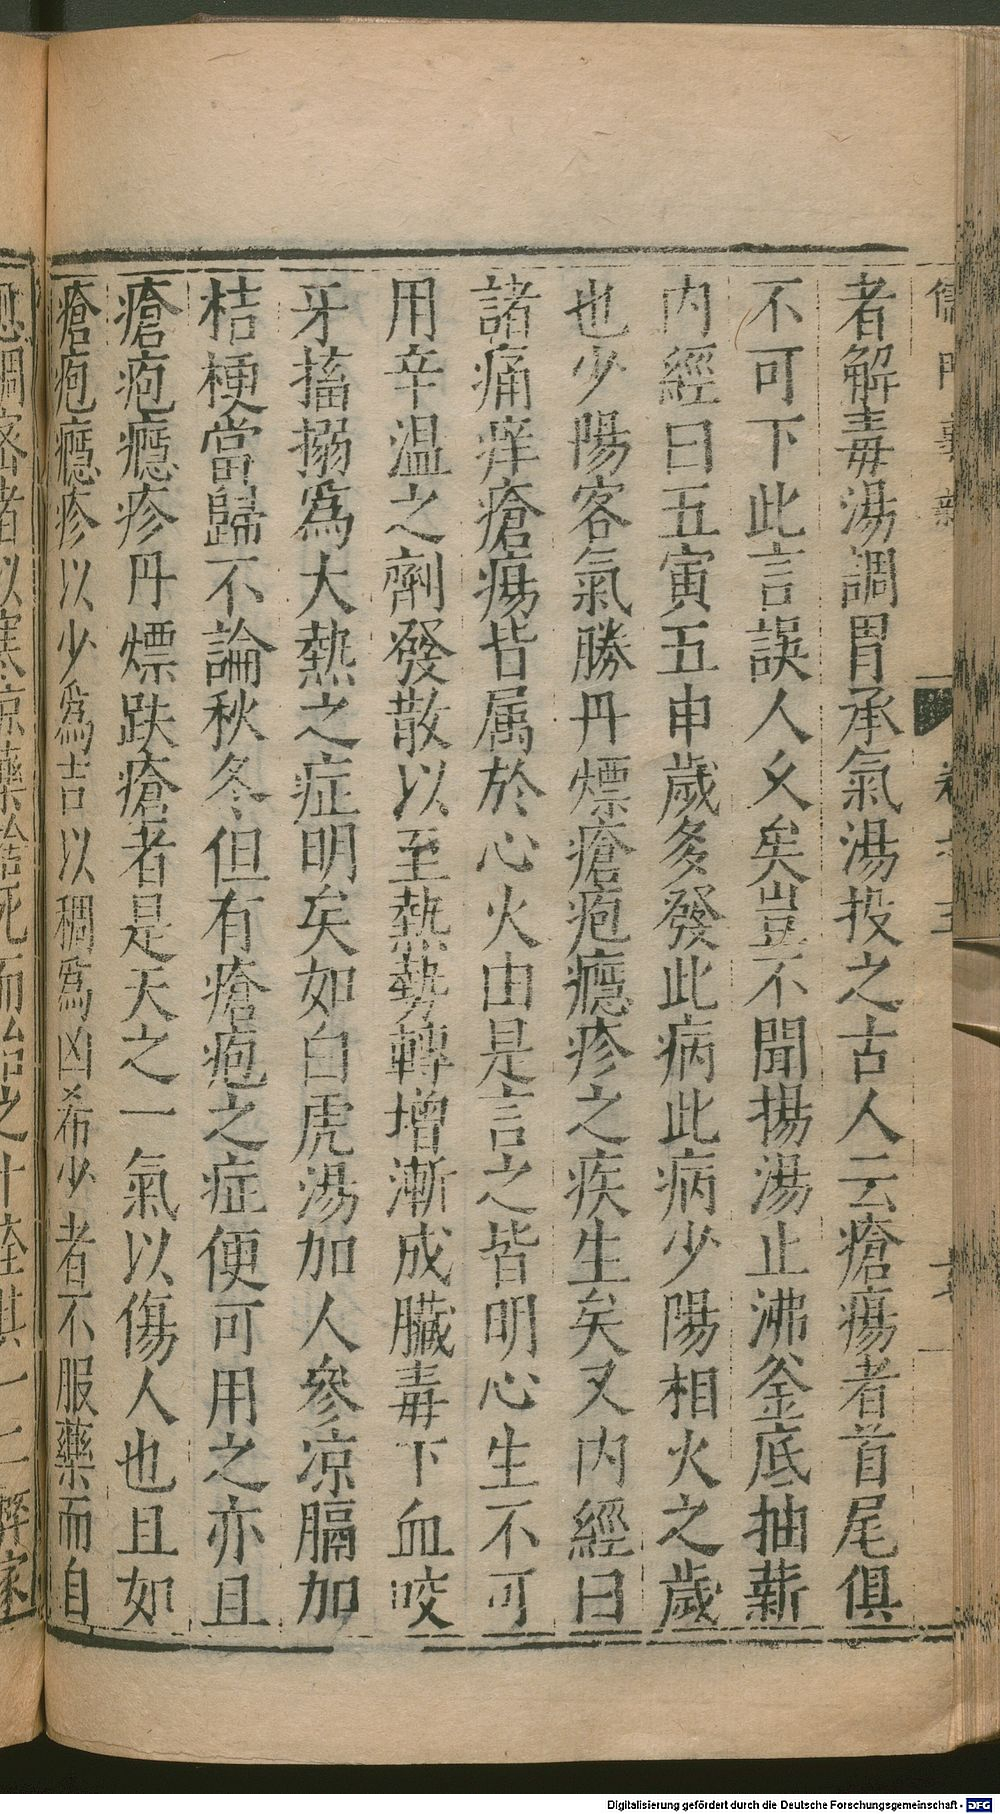 者解毒湯調胃承氣湯投之古人云瘡瘍者首尾俱
不可下此言誤人久矣豈不聞揚湯止沸釜底抽薪
內經曰五寅五申歲多發此病此病少陽相火之歲
也少陽客氣勝丹熛瘡疱癮疹之疾生矣又內經曰
諸痛痒瘡瘍皆属於心火由是言之皆明心生不可
用辛温之劑發散以至熱勢轉增漸成臟毒下血咬
牙搐搦爲大熱之症明矣如白虎湯加人參凉膈加
桔梗當歸不論秋冬但有瘡疱之症便可用之亦且
瘡疱癮疹丹熛趺瘡者是天之一氣以傷人也且如
瘡疱癮疹以少爲吉以稠爲凶希少者不服藥而自
稠密者以寒凉藥
死而治之十痊其一二
Digitalisierung gefördert durch die Deutsche Forschungsgemeinschaft - DFG